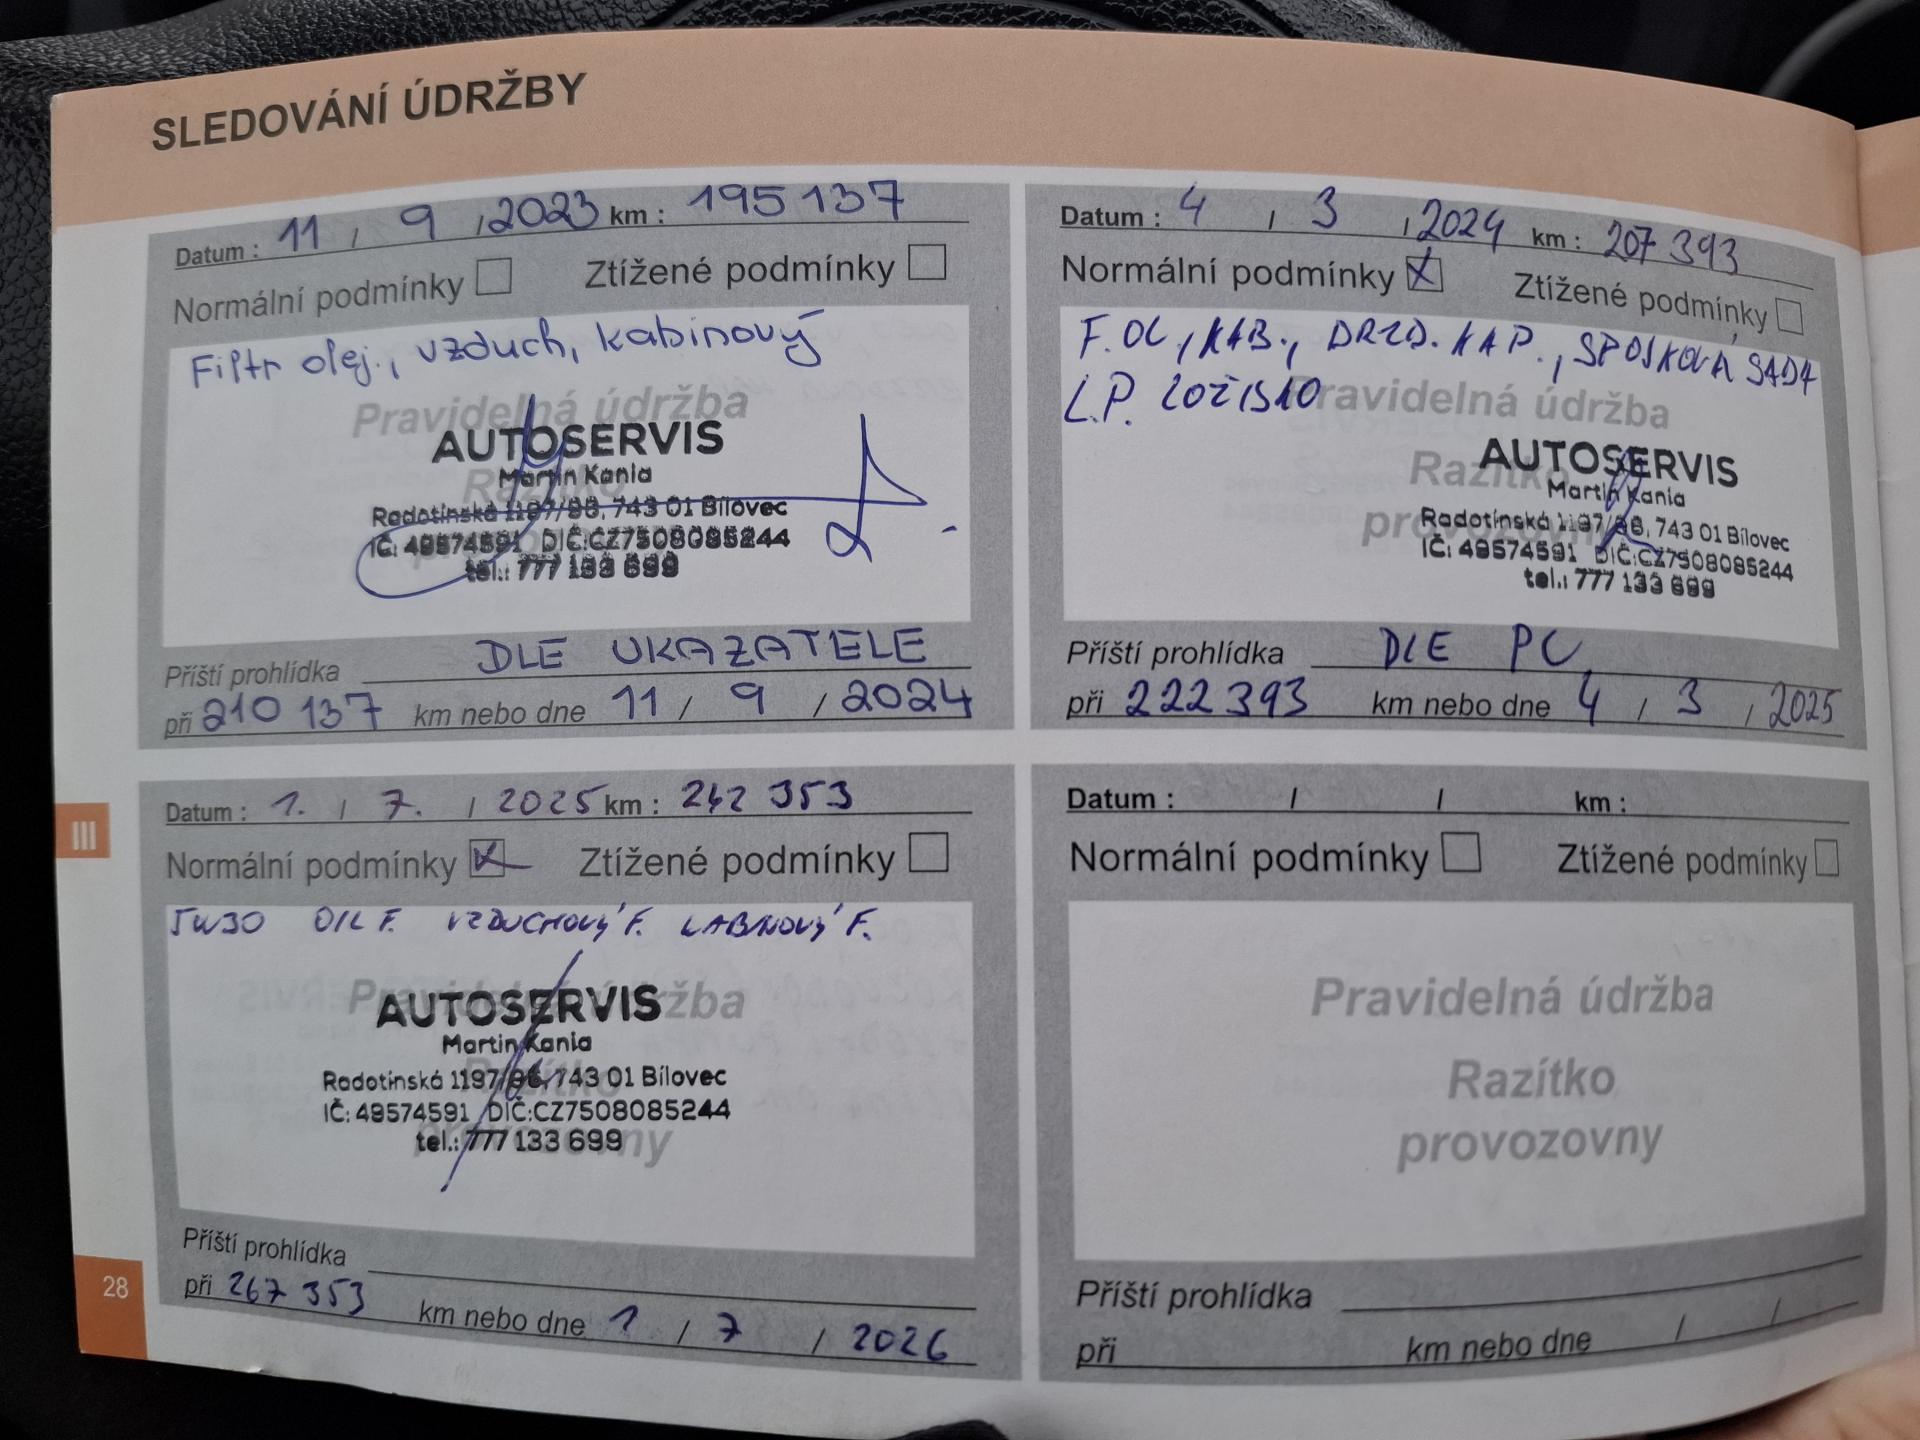 SLEDOVÁNÍ ÚDRŽBY
Datum : 11 / 9 / 2023 km : 195 137
Normální podmínky Ztížené podmínky
Filtr olej., vzduch, kabinový
Pravidelná údržba
AUTOSERVIS
Martin Kania
Radotínská 1197/96, 743 01 Bílovec
IČ: 49574591 DIČ:CZ7508085244
tel.: 777 133 699
Příští prohlídka DLE UKAZATELE
při 210 137 km nebo dne 11 / 9 / 2024
Datum : 4 / 3 / 2024 km : 207 393
Normální podmínky X Ztížené podmínky
F. OL, KAB., BRZD. KAP., SPOJKOVÁ SADA
L.P. LOŽISKO
Pravidelná údržba
Razítko
provozovny
AUTOSERVIS
Martin Kania
Radotínská 1197/96, 743 01 Bílovec
IČ: 49574591 DIČ:CZ7508085244
tel.: 777 133 699
Příští prohlídka DLE PC
při 222 393 km nebo dne 4 / 3 / 2025
Datum : 1. / 7. / 2025 km : 242 353
Normální podmínky X Ztížené podmínky
5W30 OIL F. VZDUCHOVÝ F. KABINOVÝ F.
Pravidelná údržba
Razítko
provozovny
AUTOSERVIS
Martin Kania
Radotínská 1197/96, 743 01 Bílovec
IČ: 49574591 DIČ:CZ7508085244
tel.: 777 133 699
Příští prohlídka
při 267 353 km nebo dne 1 / 7 / 2026
Datum : / / km :
Normální podmínky Ztížené podmínky
Pravidelná údržba
Razítko
provozovny
Příští prohlídka
při km nebo dne / /
III
28